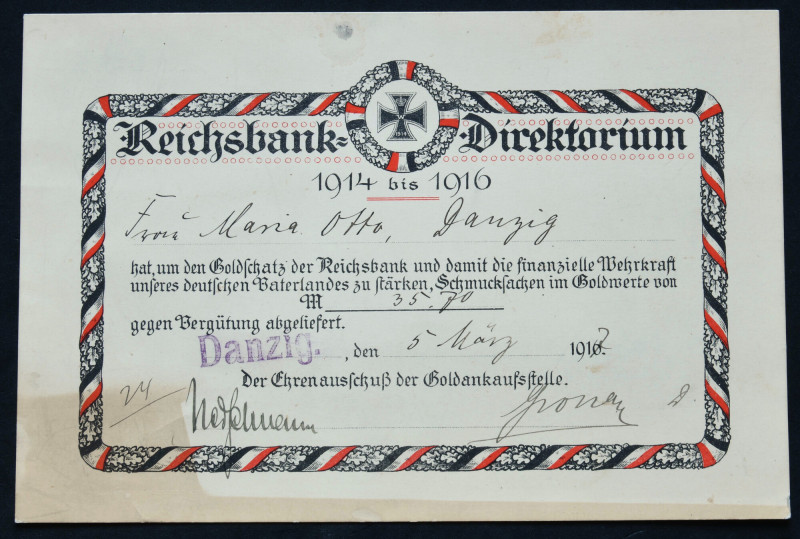 Reichsbank=Direktorium
1914 bis 1916
Frau Maria Otto, Danzig
hat, um den Goldschatz der Reichsbank und damit die finanzielle Wehrkraft
unseres deutschen Vaterlandes zu stärken, Schmucksachen im Goldwerte von
M 35.70
gegen Vergütung abgeliefert.
Danzig. , den 5 März 1917
Der Ehrenausschuß der Goldankaufsstelle.